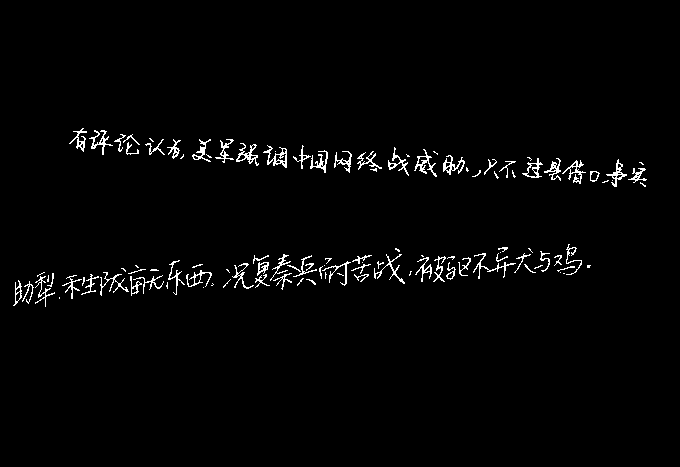 有评论认为，美军强调中国网络战威胁，只不过是借口。事实
助犁，禾生陇亩无东西。况复秦兵耐苦战，被驱不异犬与鸡。